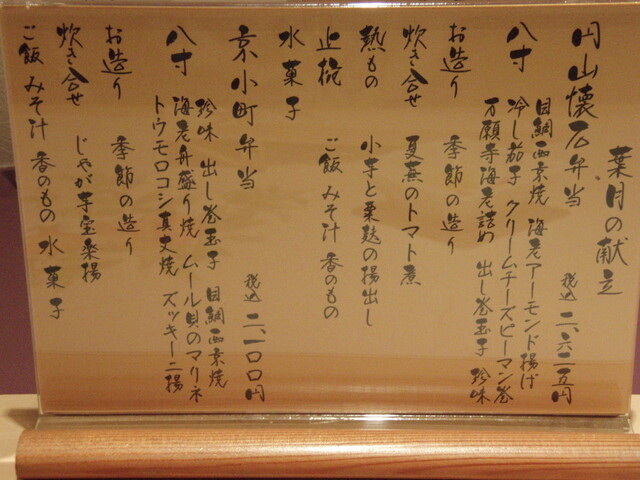 葉月の献立
円山懐石弁当 税込 二、六二五円
目鯛西京焼 海老アーモンド揚げ
八寸 冷し茄子 クリームチーズピーマン釜
万願寺海老詰め 出し巻玉子 珍味
お造り 季節の造り
炊き合せ 夏蕪のトマト煮
熱もの 小芋と粟麩の揚出し
止椀 ご飯 みそ汁 香のもの
水菓子
京小町弁当 税込 二、一〇〇円
珍味 出し巻玉子 目鯛西京焼
八寸 海老舟盛り焼 ムール貝のマリネ
トウモロコシ真丈焼 ズッキーニ揚
お造り 季節の造り
炊き合せ じゃが芋宝楽揚
ご飯 みそ汁 香のもの 水菓子